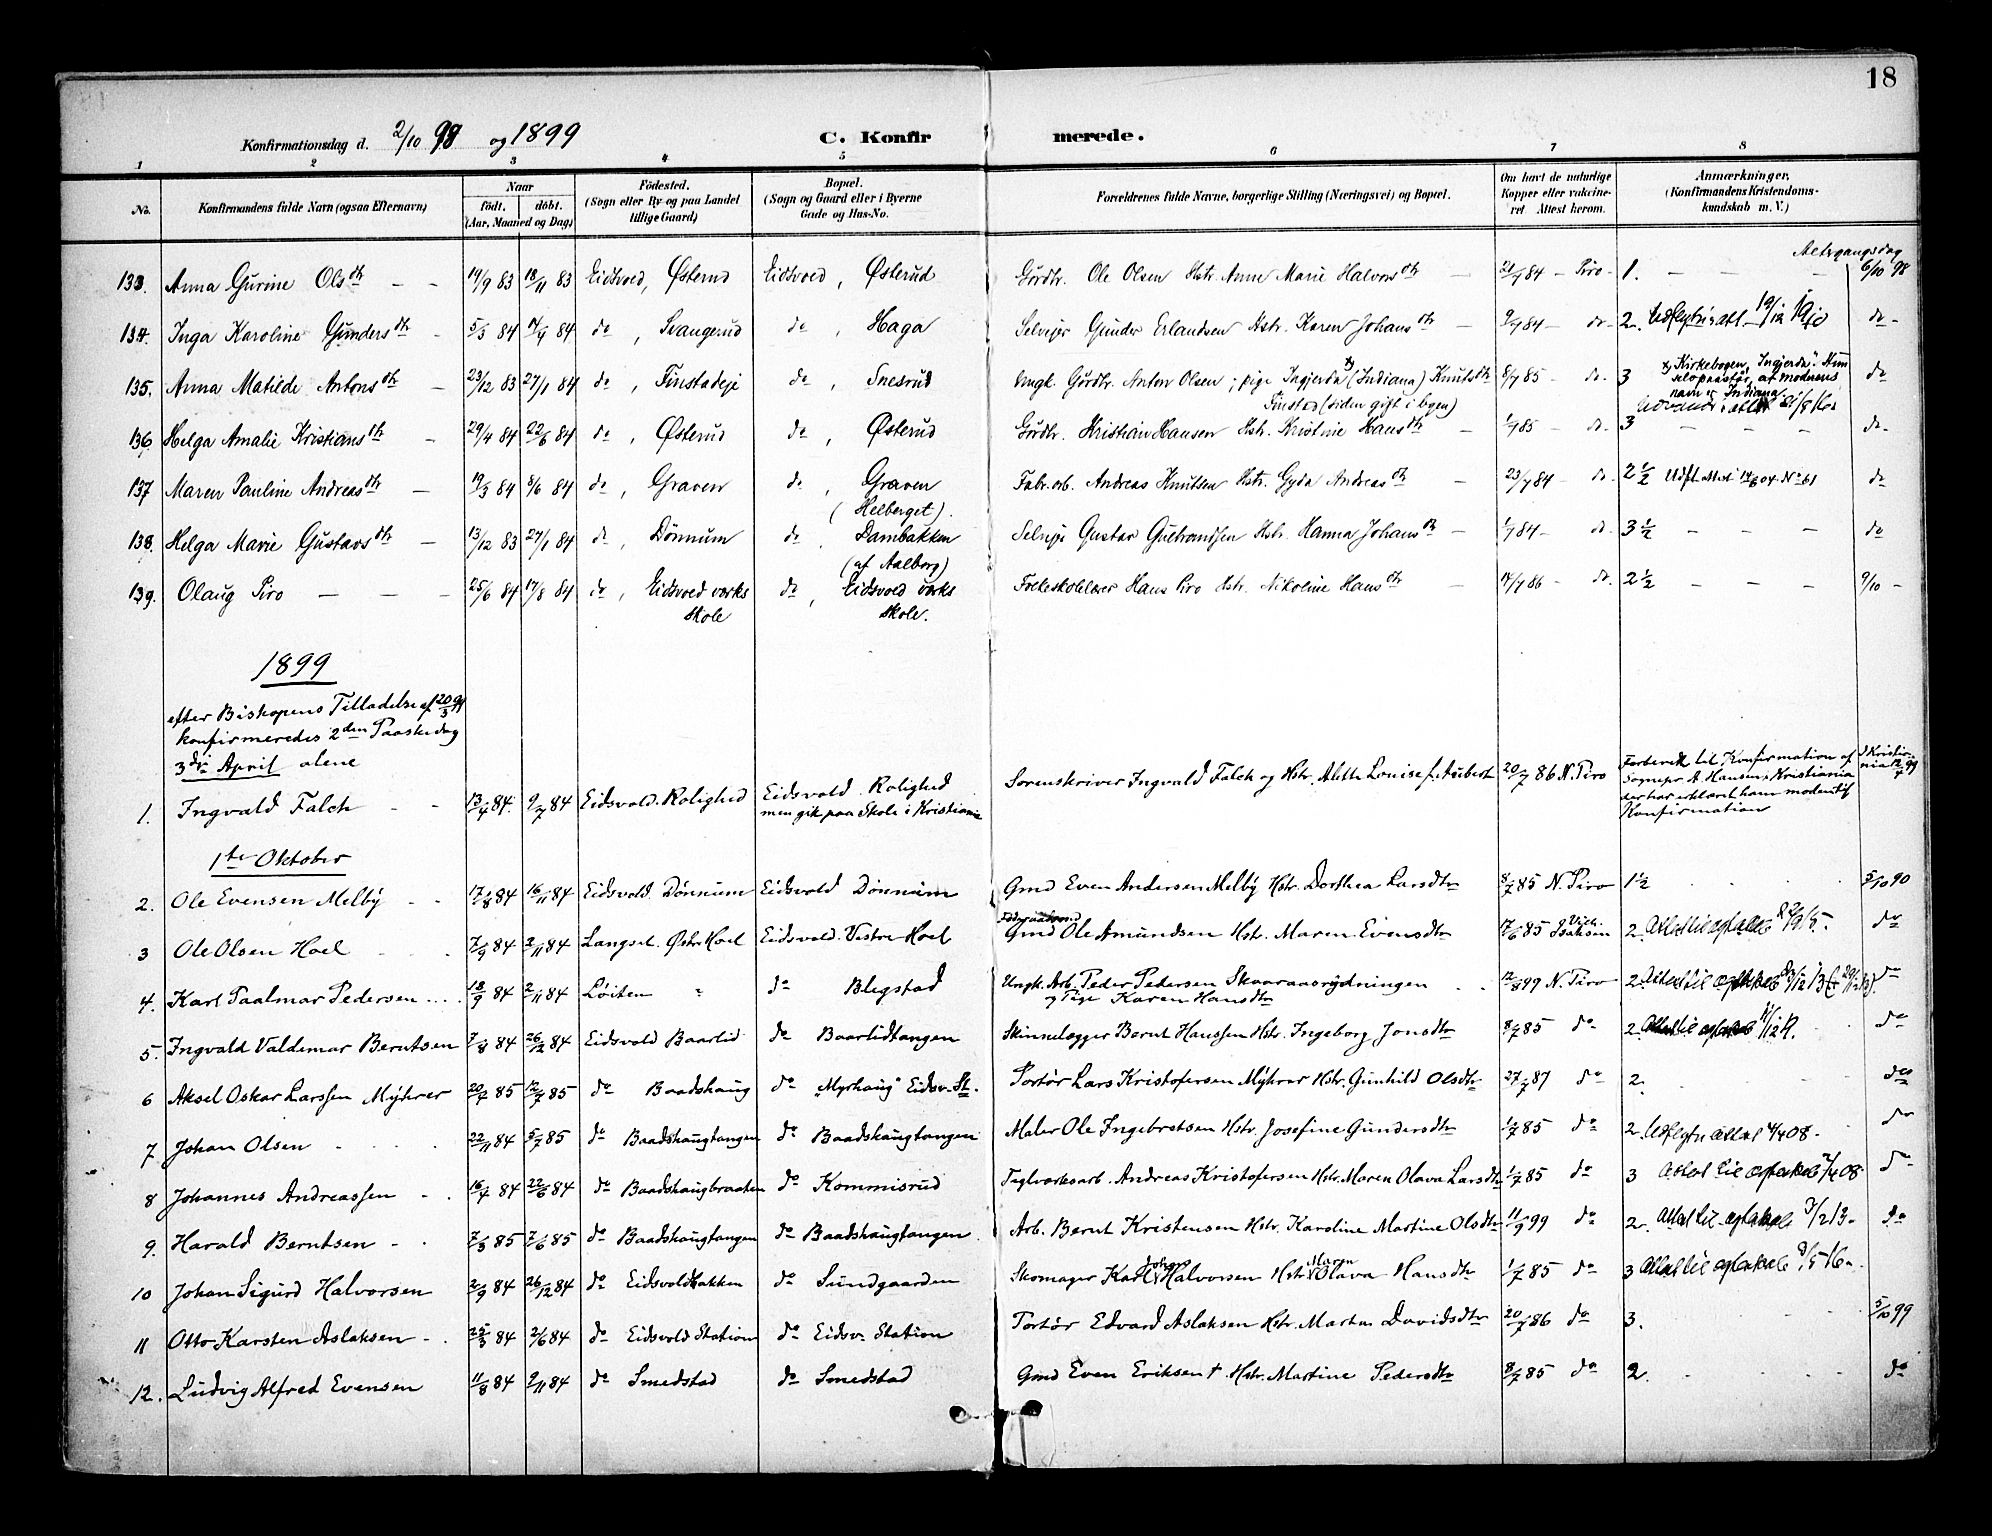 18
Konfirmationsdag d. 2/10 98 og 1899 C. Konfirmerede.
1 2 3 4 5 6 7 8
No. Konfirmandens fulde Navn (ogsaa Efternavn) Naar födt. döbt. (Aar, Maaned og Dag) Födested. (Sogn eller By og paa Landet tillige Gaard) Bopæl. (Sogn og Gaard eller i Byerne Gade og Hus-No. Forældrenes fulde Navne, borgerlige Stilling (Næringsvei) og Bopæl. Om havt de naturlige Kopper eller vaccineret Attest herom. Anmærkninger, (Konfirmandens Kristendomskundskab m. V.)
Altergangsdag
133. Anna Gurine Olsdtr 14/9 83 18/11 83 Eidsvold, Østerud Eidsvold, Østerud Gårdbr. Ole Olsen Hstr. Anne Marie Halvorsdtr 21/7 84 - Piro - 1. 6/10 98
134. Inga Karoline Gundersdtr 5/3 84 14/4 84 do, Svangerud do, Haga Selvejer Gunder Erlandsen Hstr. Karen Johansdtr 9/7 84 - do - 2. Udflytn.att. 19/12 1910 do -
135. Anna Matilde Antonsdtr 23/12 83 27/1 84 do, Finstadeje do, Snesrud Ungk. Gårdbr. Anton Olsen; pige Ingjerda x) (Indiana) Knutsdtr 8/7 85 - do - 3 x) Kirkebogen "Ingjerda". do
Finstad (siden gift i byen) at moderens navn er Indiana.
136 Helga Amalie Kristiansdtr 29/4 84 22/6 84 do, Østerud do, Østerud Gårdbr. Kristian Hansen Hstr. Kristine Hansdtr 1/7 85 - do - 3 do -
137 Maren Pauline Andreasdtr 19/3 84 8/6 84 do, Graven do, Graven Fabr.arb. Andreas Knutsen Hstr. Gyda Andreasdtr 23/7 84 - do - 2 1/2 do
(Helberget).
138. Helga Marie Gustavsdtr 13/12 83 27/1 84 do, Dønnum do, Dambakken Selvej. Gustav Gulbrandsen Hstr. Hanna Johansdtr 1/7 84 - do - 3 1/2 do
(af Aalborg)
139. Olaug Piro 25/6 84 17/8 84 do, Eidsvold værks do, Eidsvold værks Folkeskolelærer Hans Piro Hstr. Nikoline Hansdtr 14/7 86 - do - 2 1/2 9/10 -
skole skole.
1899
efter Biskopens Tilladelse af 20/3 99
konfirmeredes 2den Paaskedag
3die April alene
1. Ingvald Falch 13/4 84. 9/7 84 Eidsvold. Rolighed Eidsvold. Rolighed Sorenskriver Ingvald Falch og Hstr. Alette Louise f. Aubert 20/7 86 N. Piro Forberedt til Konfirmation af
men gik paa Skole i Kristiania Sognepr A. Hansen, Kristiania
der har erklæret ham moden til
Konfirmation
1te Oktober
2. Ole Evensen Melby 17/8 84 16/11 84 Eidsvold Dønnum Eidsvold Dønnum Gmd Even Andersen Melby Hstr. Dorthea Larsdtr 8/7 85 N. Piro 1 1/2 5/10 90
3 Ole Olsen Hoel 7/9 84 2/11 84 Langset. Østre Hoel Eidsvold. Vestre Hoel Gmd Ole Amundsen Hstr. Maren Evensdtr 17/6 85 2. Attest til ægteskab do
4. Karl Paalmar Pedersen 18/9 84 2/11 84 Løiten " do Blegstad Ungk. Arb. Peder Pedersen Skaaraasrydningen 12/8 99 N. Piro 2. Attest til ægteskab do
og Pige Karen Hansdtr
5. Ingvald Valdemar Berntsen 7/8 84 26/12 84 Eidsvold Baarlid do Baarlidtangen Skinnelægger Bernt Hanssen Hstr. Ingeborg Jonsdtr 8/7 85 do 2. Attest til ægteskab do
6 Aksel Oskar Larssen Myhrer 20/2 85 12/7 85 do Baadshaug do "Myrhaug" Eidsv. St. Portør Lars Kristofersen Myhrer Hstr. Gunhild Olsdtr 27/7 87 do 2. do
7. Johan Olsen 22/11 84 5/7 85 do Baadshaugtangen do Baadshaugtangen Maler Ole Ingebretsen Hstr. Josefine Gundersdtr 1/7 85 do 2. Udflytn Attest 4/4 08. do
8 Johannes Andreassen 16/4 84 22/6 84 do Baadshaugbraaten do Kommisrud Teglværksarb. Andreas Kristofersen Hstr. Maren Olava Larsdtr 1/7 85 do 3 Attest til ægteskab 2/4 08 do
9. Harald Berntsen 7/3 85 7/6 85 do Baadshaugtangen do Baadshaugtangen Arb. Bernt Kristensen Hstr. Karoline Martine Olsdtr 11/9 99 do 2. Attest til ægteskab 3/2 13. do
10 Johan Sigurd Halvorsen 2/9 84 26/12 84 do Eidsvoldbakken do Sundgaarden Skomager Karl Johan Halvorsen Hstr. Maren Olava Hansdtr 1/7 85 do 3 Attest til ægteskab 9/5 16.
11 Otto Karsten Aslaksen 25/3 84 2/6 84 do Eidsvold Station do Eidsv. Station Portør Edvard Aslaksen Hstr. Marthe Davidsdtr 20/7 86 do 3. 5/10 99
12. Ludvig Alfred Evensen 11/8 84 9/11 84 do Smedstad do Smedstad Gmd Even Eriksen † Hstr. Martine Pedersdtr 8/7 85 do 2. do